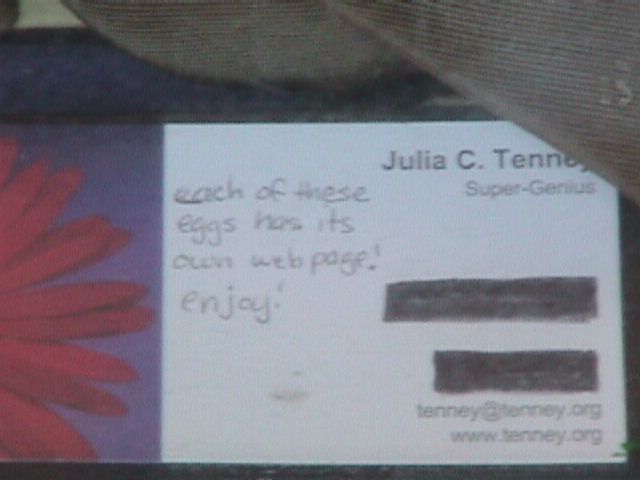 Julia C. Tenney
Super-Genius
each of these
eggs has its
own web page!
enjoy!
tenney@tenney.org
www.tenney.org